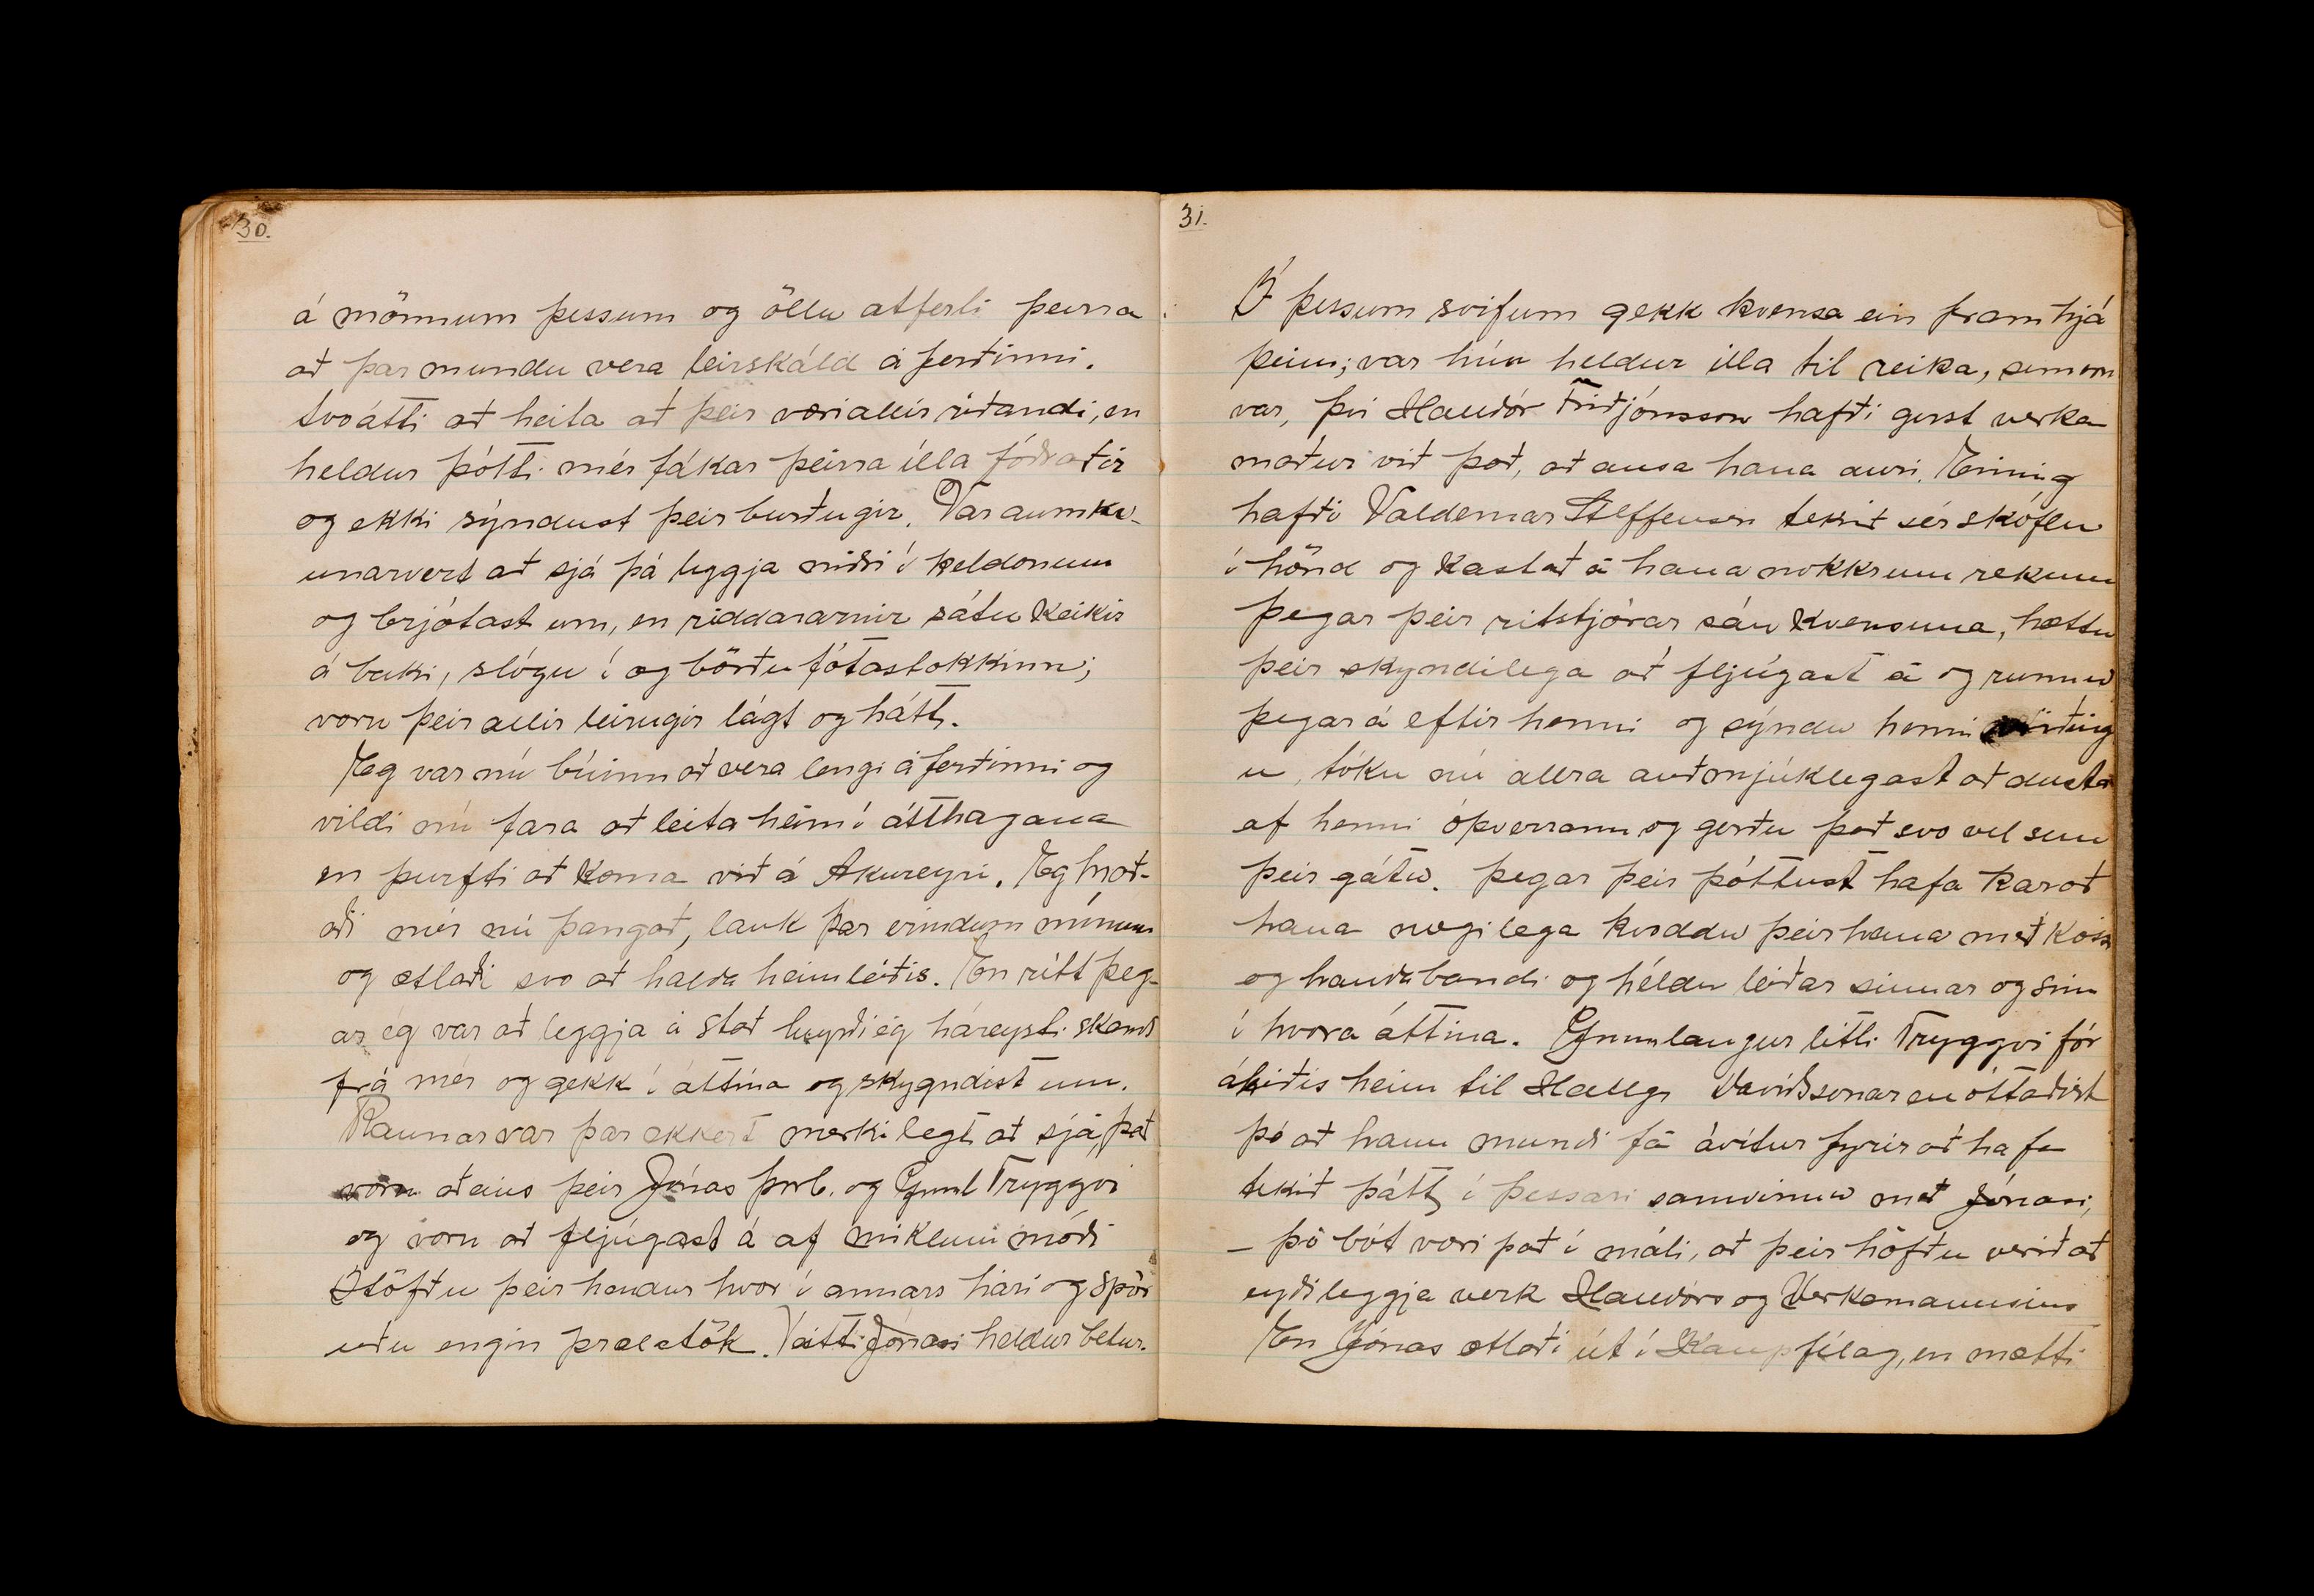 30.
á mönnum þessum og öllu atferli þeirra
að þar mundu vera leirskáld á ferðinni.
Svo átti að heita að þeir væri allir ríðandi, en
heldur þótti mér fákar þeirra illa fóðraðir
og ekki sýndust þeir burðugir. Var aumk-
unarvert að sjá þá liggja niðri í keldonum
og brjótast um, en riddararnir sátu keikir
á baki, slógu í og börðu fótastokkinn;
voru þeir allir leirugir lágt og hátt.
Eg var nú búinn að vera lengi á ferðinni og
vildi nú fara að leita heim í átthagana
en þurfti að koma við á Akureyri. Eg hrað-
aði mér nú þangað, lauk þar erindum mínum
og ætlaði svo að halda heimleiðis. En rétt þeg-
ar ég var að leggja á stað heyrði ég háreysti skamt
frá mér og gekk í áttina og skygndist um.
Raunar var þar ekkert merkilegt að sjá, það
voru aðeins þeir Jónas þorb. og Gunnl Tryggvi
og voru að fljúgast á af miklum móði
Höfðu þeir hendur hvor í annars hári og spör
uðu engin þrælatök. Veitti Jónasi heldur betur.
31.
Í þessum svifum gekk kvensa ein fram hjá
þeim; var hún heldur illa til reika, sem von
var, því Halldór Friðjónsson hafði gerst verka
maður við það, að ausa hana auri. Einnig
hafði Valdemar Steffensen tekið sér skóflu
í hönd og kastað á hana nokkrum rekum
þegar þeir ritstjórar sáu kvensuna, hættu
þeir skyndilega að fljúgast á og runnu
þegar á eftir henni og sýndu henni virðing
u, tóku nú allra auðmjúklegast að dusta
af henni óþverrann og gerðu það svo vel sem
þeir gátu. Þegar þeir þóttust hafa karað
hana nægilega kvöddu þeir hana með kossi
og handabandi og héldu leiðar sinnar og sinn
í hvora áttina. Gunnlaugur litli Tryggvi fór
áleiðis heim til Hallgr Davíðssonar en óttaðist
þó að hann mundi fá ávítur fyrir að hafa
tekið þátt í þessari samvinnu með Jónasi,
– þó bót væri það í máli, að þeir höfðu verið að
eyðileggja verk Halldórs og Verkamannsins
En Jónas ætlaði út í Kaupfélag, en mætti